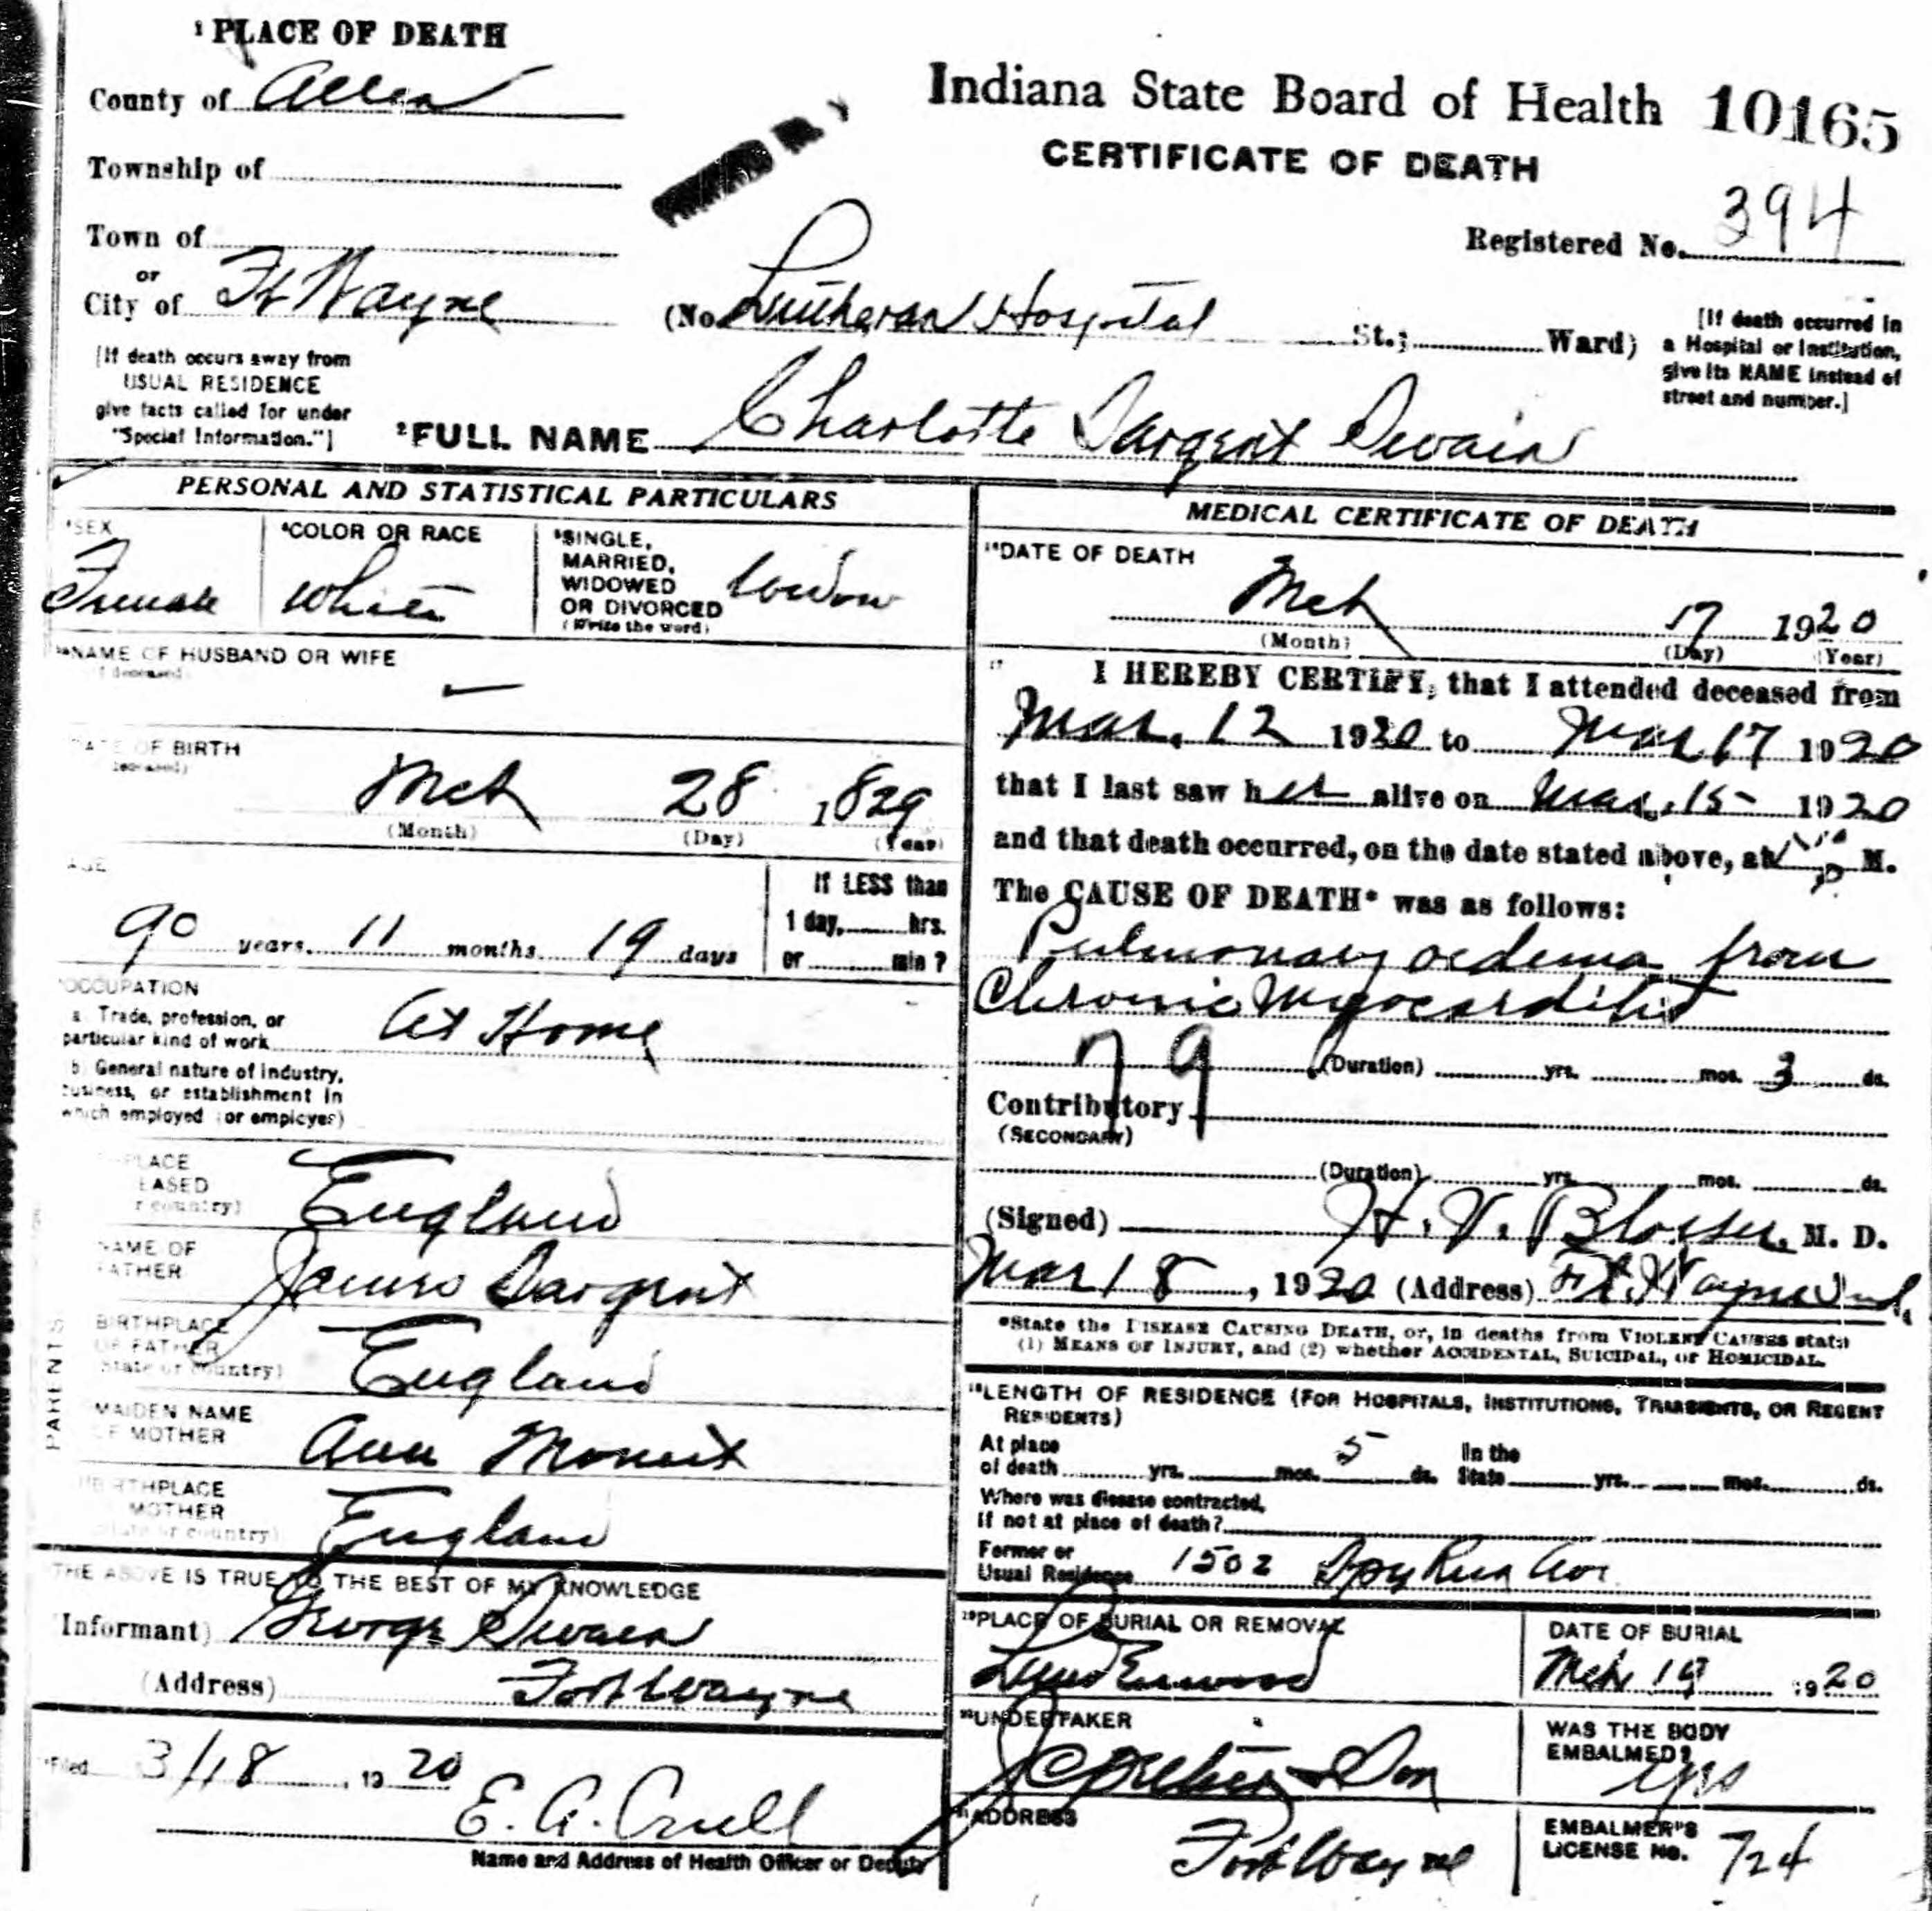 ¹ PLACE OF DEATH
County of Allen
Township of
Town of
or
City of Ft Wayne
[If death occurs away from
USUAL RESIDENCE
give facts called for under
"Special Information."]
Indiana State Board of Health 10165
CERTIFICATE OF DEATH
Registered No. 394
(No Lutheran Hospital St.; Ward)
[If death occurred in
a Hospital or Institution,
give its NAME instead of
street and number.]
²FULL NAME Charlotte Sargent Swain
PERSONAL AND STATISTICAL PARTICULARS
³SEX
Female
⁴COLOR OR RACE
White
⁵SINGLE,
MARRIED,
WIDOWED
OR DIVORCED
(Write the word)
Widow
NAME OF HUSBAND OR WIFE
deceased
DATE OF BIRTH
deceased)
Mch 28 1829
(Month) (Day) (Year)
AGE
90 years 11 months 19 days
If LESS than
1 day, hrs.
or min?
OCCUPATION
a. Trade, profession, or
particular kind of work At Home
b. General nature of industry,
business, or establishment in
which employed (or employer)
PLACE
EASED
r country) England
PARENTS
NAME OF
FATHER James Sargent
BIRTHPLACE
OF FATHER
State or country) England
MAIDEN NAME
OF MOTHER Ann
BIRTHPLACE
MOTHER
State or country) England
THE ABOVE IS TRUE TO THE BEST OF MY KNOWLEDGE
Informant) George Swain
(Address) Fort Wayne
Filed 3/18, 1920
E. A. Crull
Name and Address of Health Officer or Deputy
MEDICAL CERTIFICATE OF DEATH
¹⁶DATE OF DEATH
Mch 17 1920
(Month) (Day) (Year)
¹⁷ I HEREBY CERTIFY, that I attended deceased from
Mar. 12 1920 to Mar 17 1920
that I last saw her alive on Mar. 15 1920
and that death occurred, on the date stated above, at M.
The CAUSE OF DEATH* was as follows:
Pulmonary oedema from
Chronic Myocarditis
79 (Duration) yrs. mos. 3 ds.
Contributory
(SECONDARY)
(Duration) yrs. mos. ds.
(Signed) H. V. Blosser, M. D.
Mar 18, 1920 (Address) Ft. Wayne Ind.
*State the DISEASE CAUSING DEATH, or, in deaths from VIOLENT CAUSES state
(1) MEANS OF INJURY, and (2) whether ACCIDENTAL, SUICIDAL, or HOMICIDAL.
¹⁸LENGTH OF RESIDENCE (FOR HOSPITALS, INSTITUTIONS, TRANSIENTS, OR RECENT
RESIDENTS)
At place
of death yrs. mos. 5 ds. In the
State yrs. mos. ds.
Where was disease contracted,
If not at place of death?
Former or
Usual Residence 1502 Spy Run Ave
¹⁹PLACE OF BURIAL OR REMOVAL
Lindenwood
DATE OF BURIAL
Mch 19 1920
²⁰UNDERTAKER
& Son
WAS THE BODY
EMBALMED?
yes
²¹ADDRESS
Fort Wayne
EMBALMER'S
LICENSE No. 724